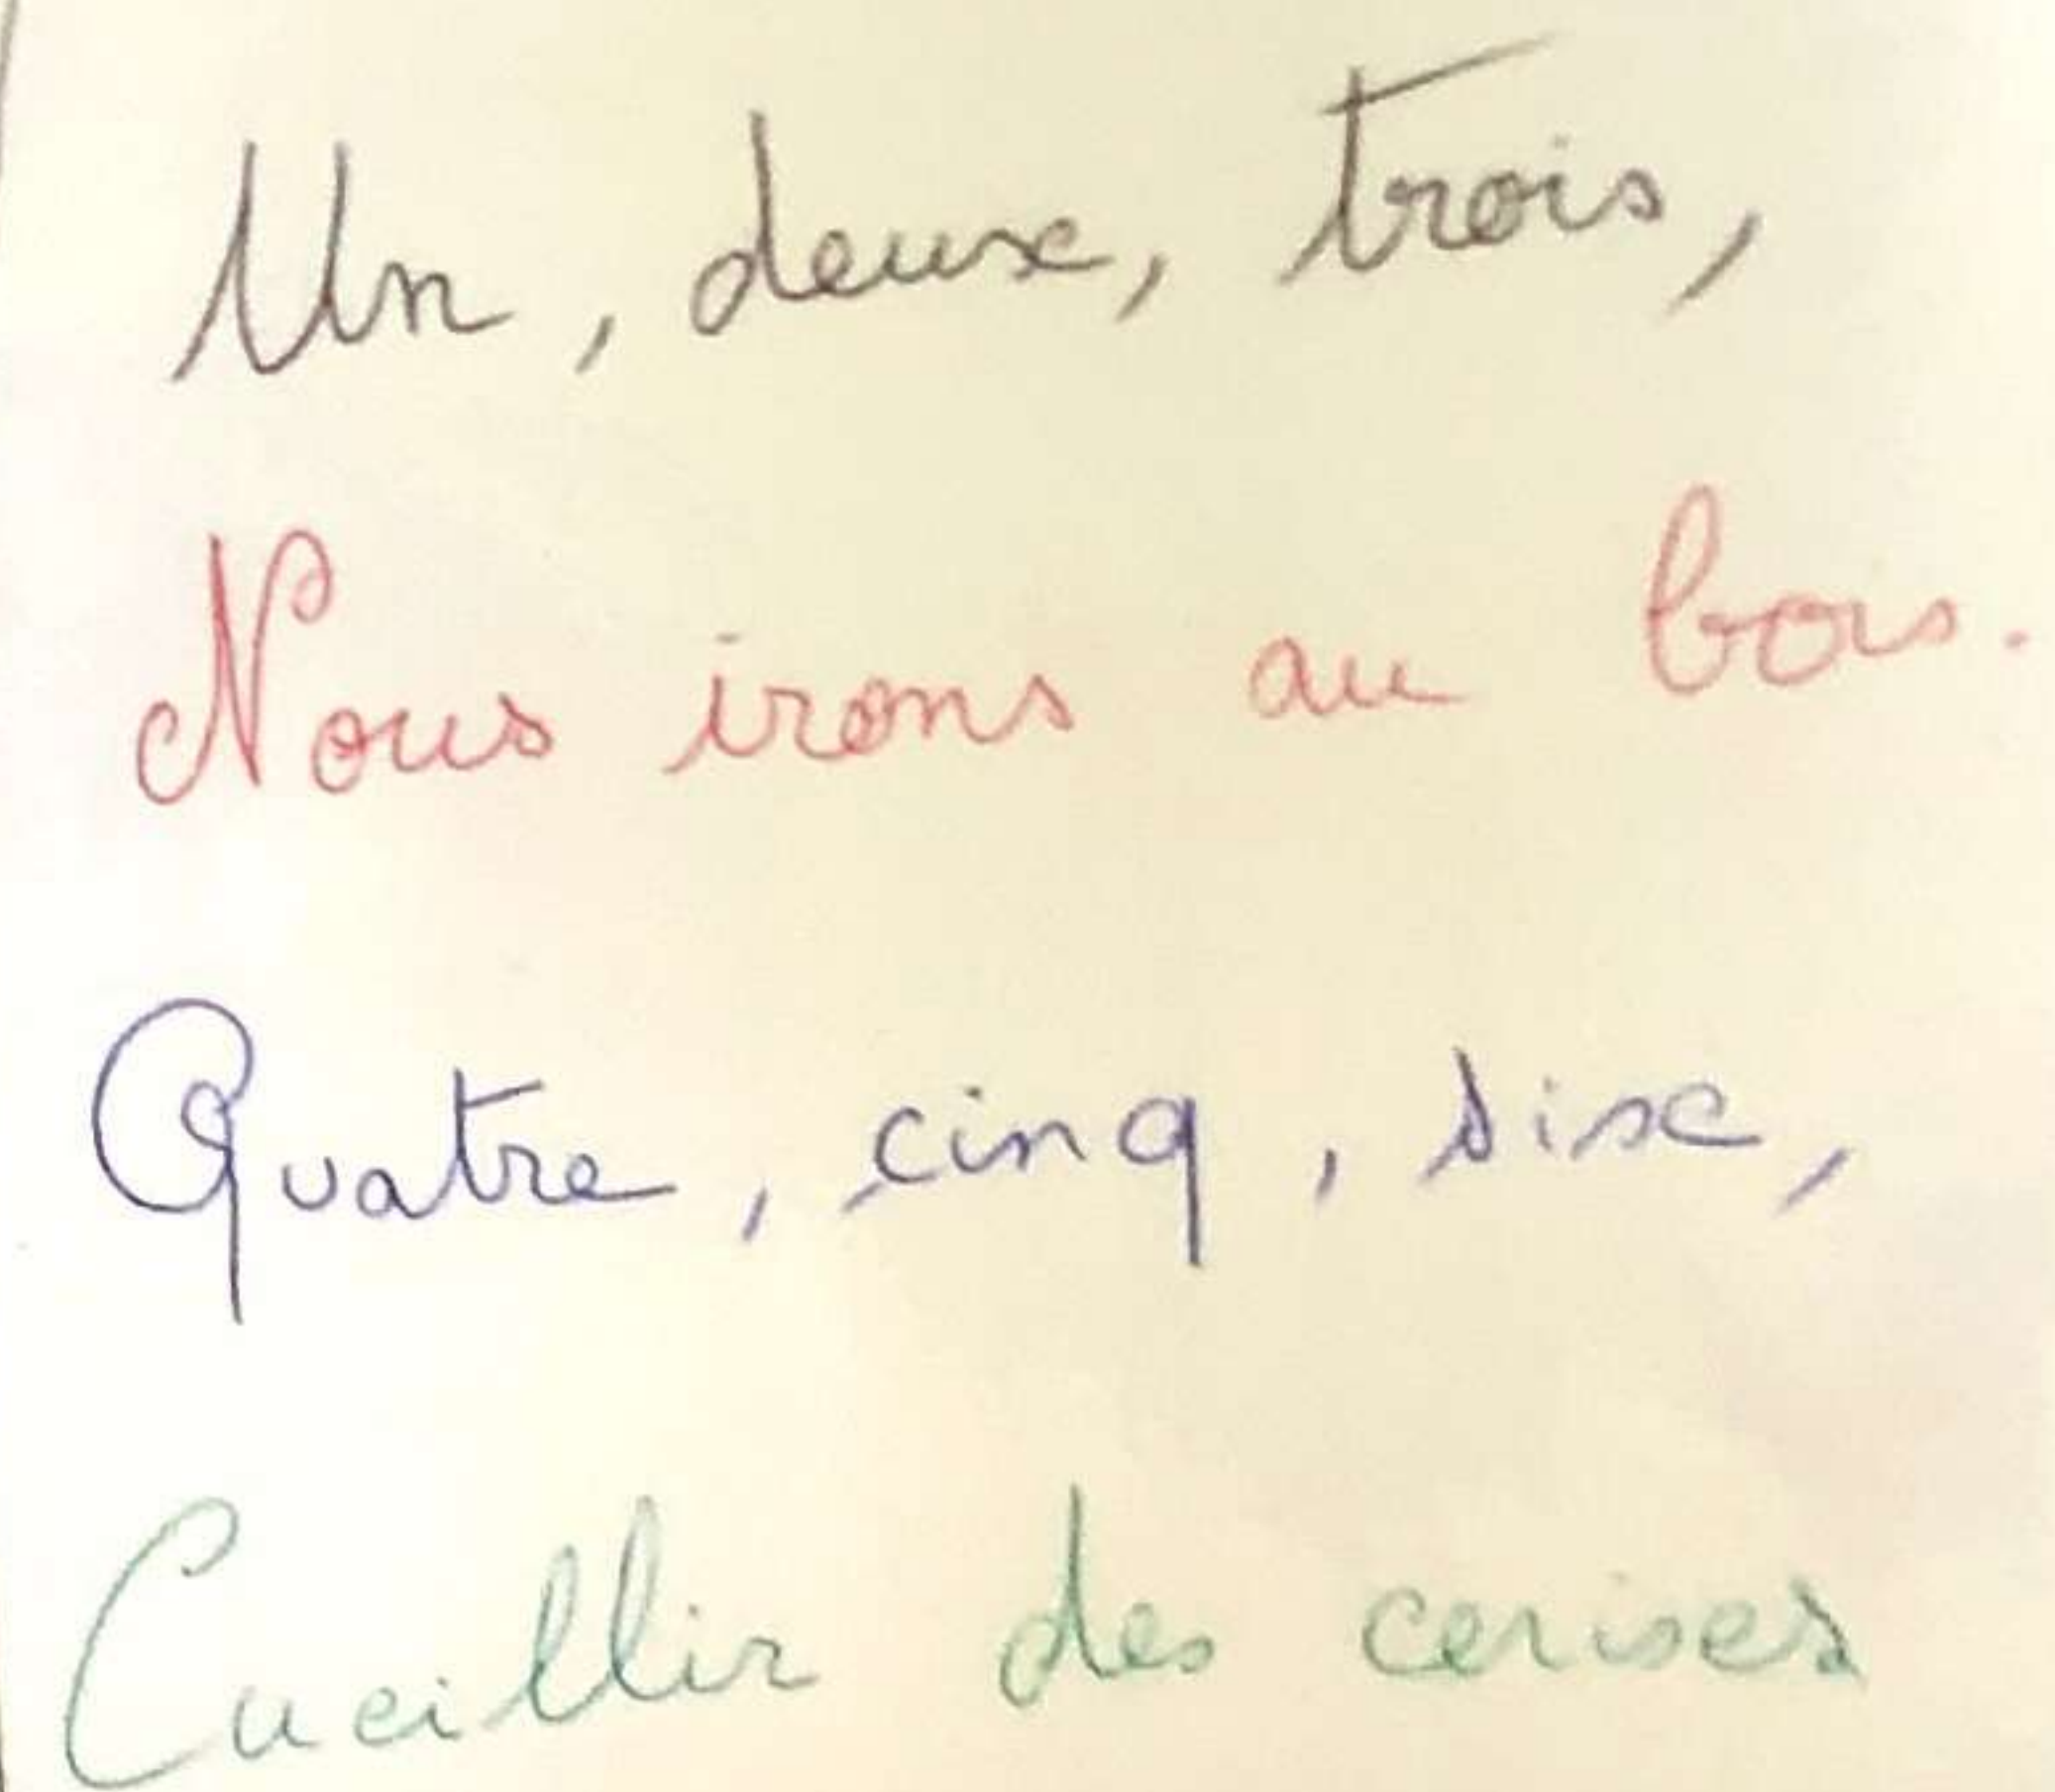 Un, deux, trois,
Nous irons au bois.
Quatre, cinq, six,
Cueillir des cerises